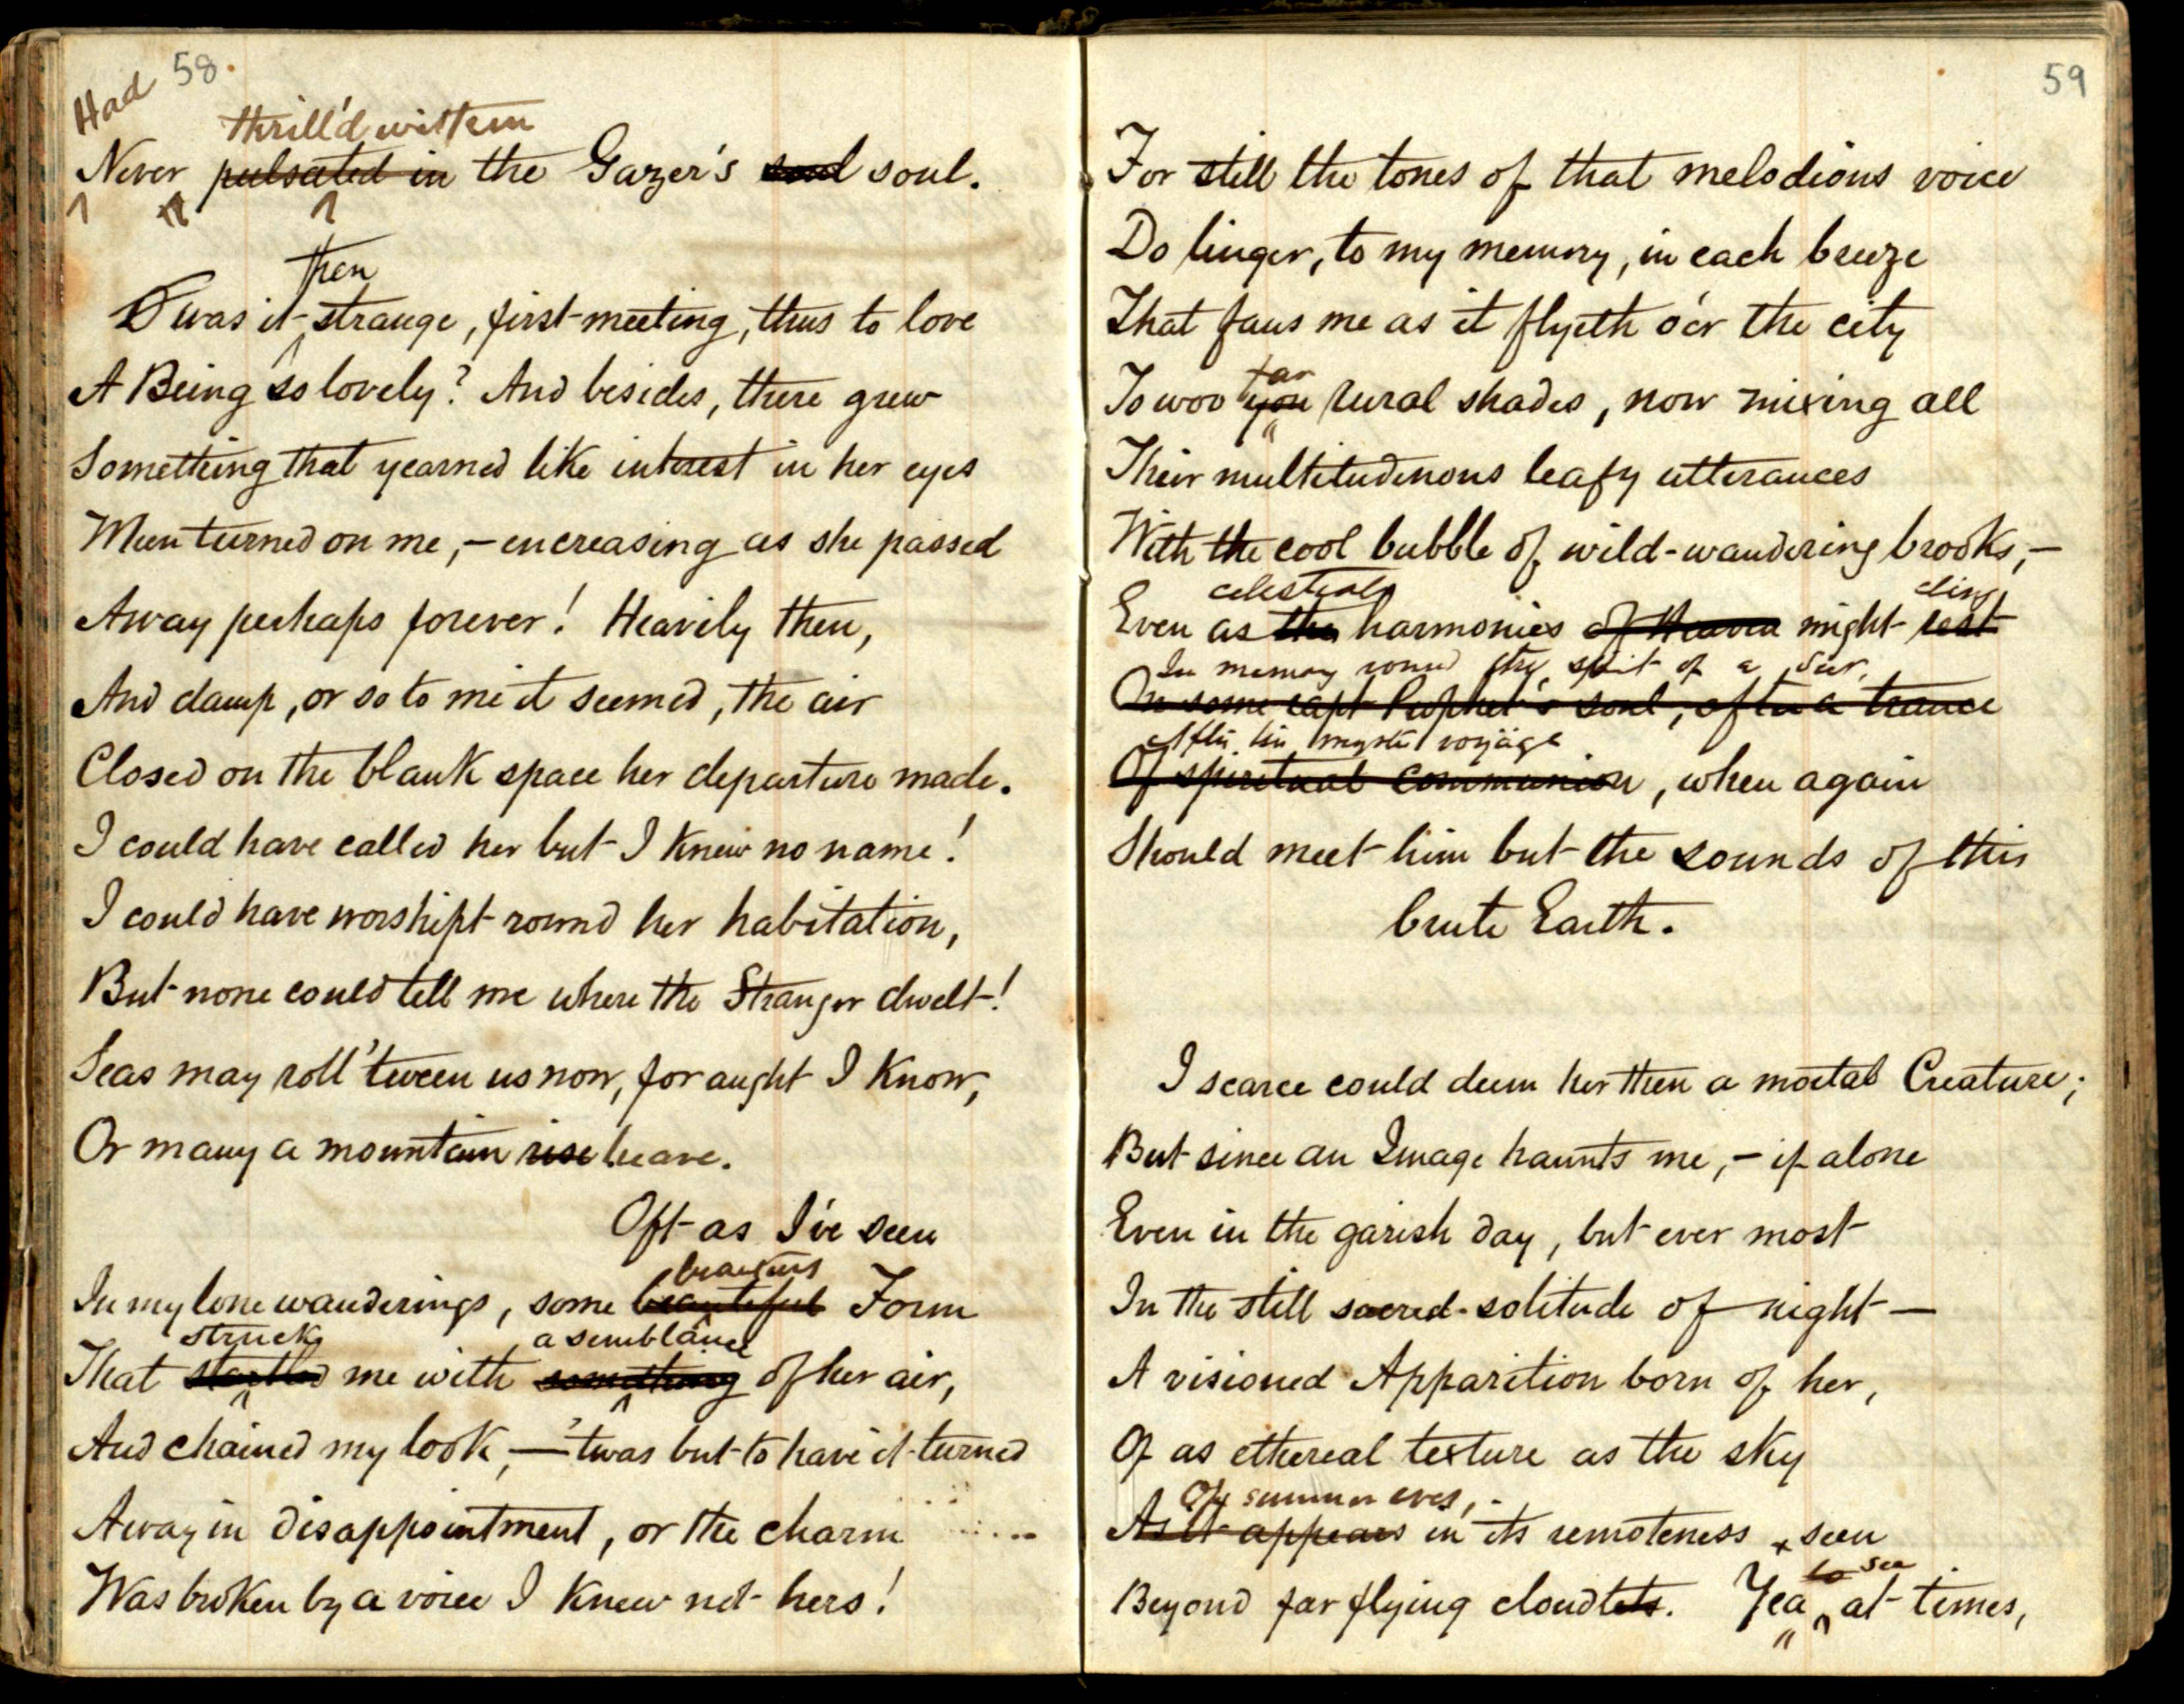 58.
Had
thrill'd within
Never pulsated in the Gazer's soul soul.
then
O was it strange, first-meeting, thus to love
A Being so lovely? And besides, there grew
Something that yearned like interest in her eyes
When turned on me,—encreasing as she passed
Away perhaps forever! Heavily then,
And damp, or so to me it seemed, the air
Closed on the blank space her departure made.
I could have called her but I knew no name!
I could have worshipt round her habitation,
But none could tell me where the Stranger dwelt!
Seas may roll 'tween us now, for aught I know,
Or many a mountain rise heave.
Oft as I've seen
beauteous
In my lone wanderings, some beautiful Form
struck a semblance
That startled me with something of her air,
And chained my look,—'twas but to have it turned
Away in disappointment, or the charm
Was broken by a voice I knew not hers!
59
For still the tones of that melodious voice
Do linger, to my memory, in each breeze
That fans me as it flyeth o'er the city
far
To woo yon rural shades, now mixing all
Their multitudinous leafy utterances
With the cool bubble of wild-wandering brooks,—
celestial cling
Even as the harmonies of Heaven might rest
In memory round the spirit of a Seer,
On some rapt Prophet's soul, after a trance
After his mystic voyage
Of spiritual communion, when again
Should meet him but the sounds of this
brute Earth.
I scarce could deem her then a mortal Creature;
But since an Image haunts me,—if alone
Even in the garish day, but ever most
In the still sacred solitude of night—
A visioned Apparition born of her,
Of as ethereal texture as the sky
Of summer eves,
As it appears in its remoteness seen
to see
Beyond far flying cloudlets. Yea at times,